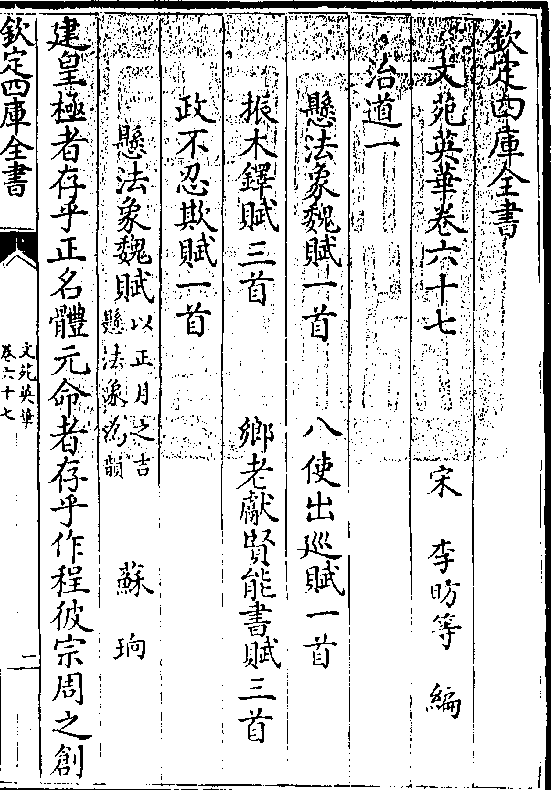 欽定四庫全書
文苑英華卷六十七
宋 李昉等 編
治道一
懸法象魏賦一首 八使出巡賦一首
振木鐸賦三首 鄉老獻賢能書賦三首
政不忍欺賦一首
懸法象魏賦以正月之吉懸法象為韻 蘇珦
建皇極者存乎正名體元命者存乎作程彼宗周之創
欽定四庫全書
文苑英華
卷六十七
二